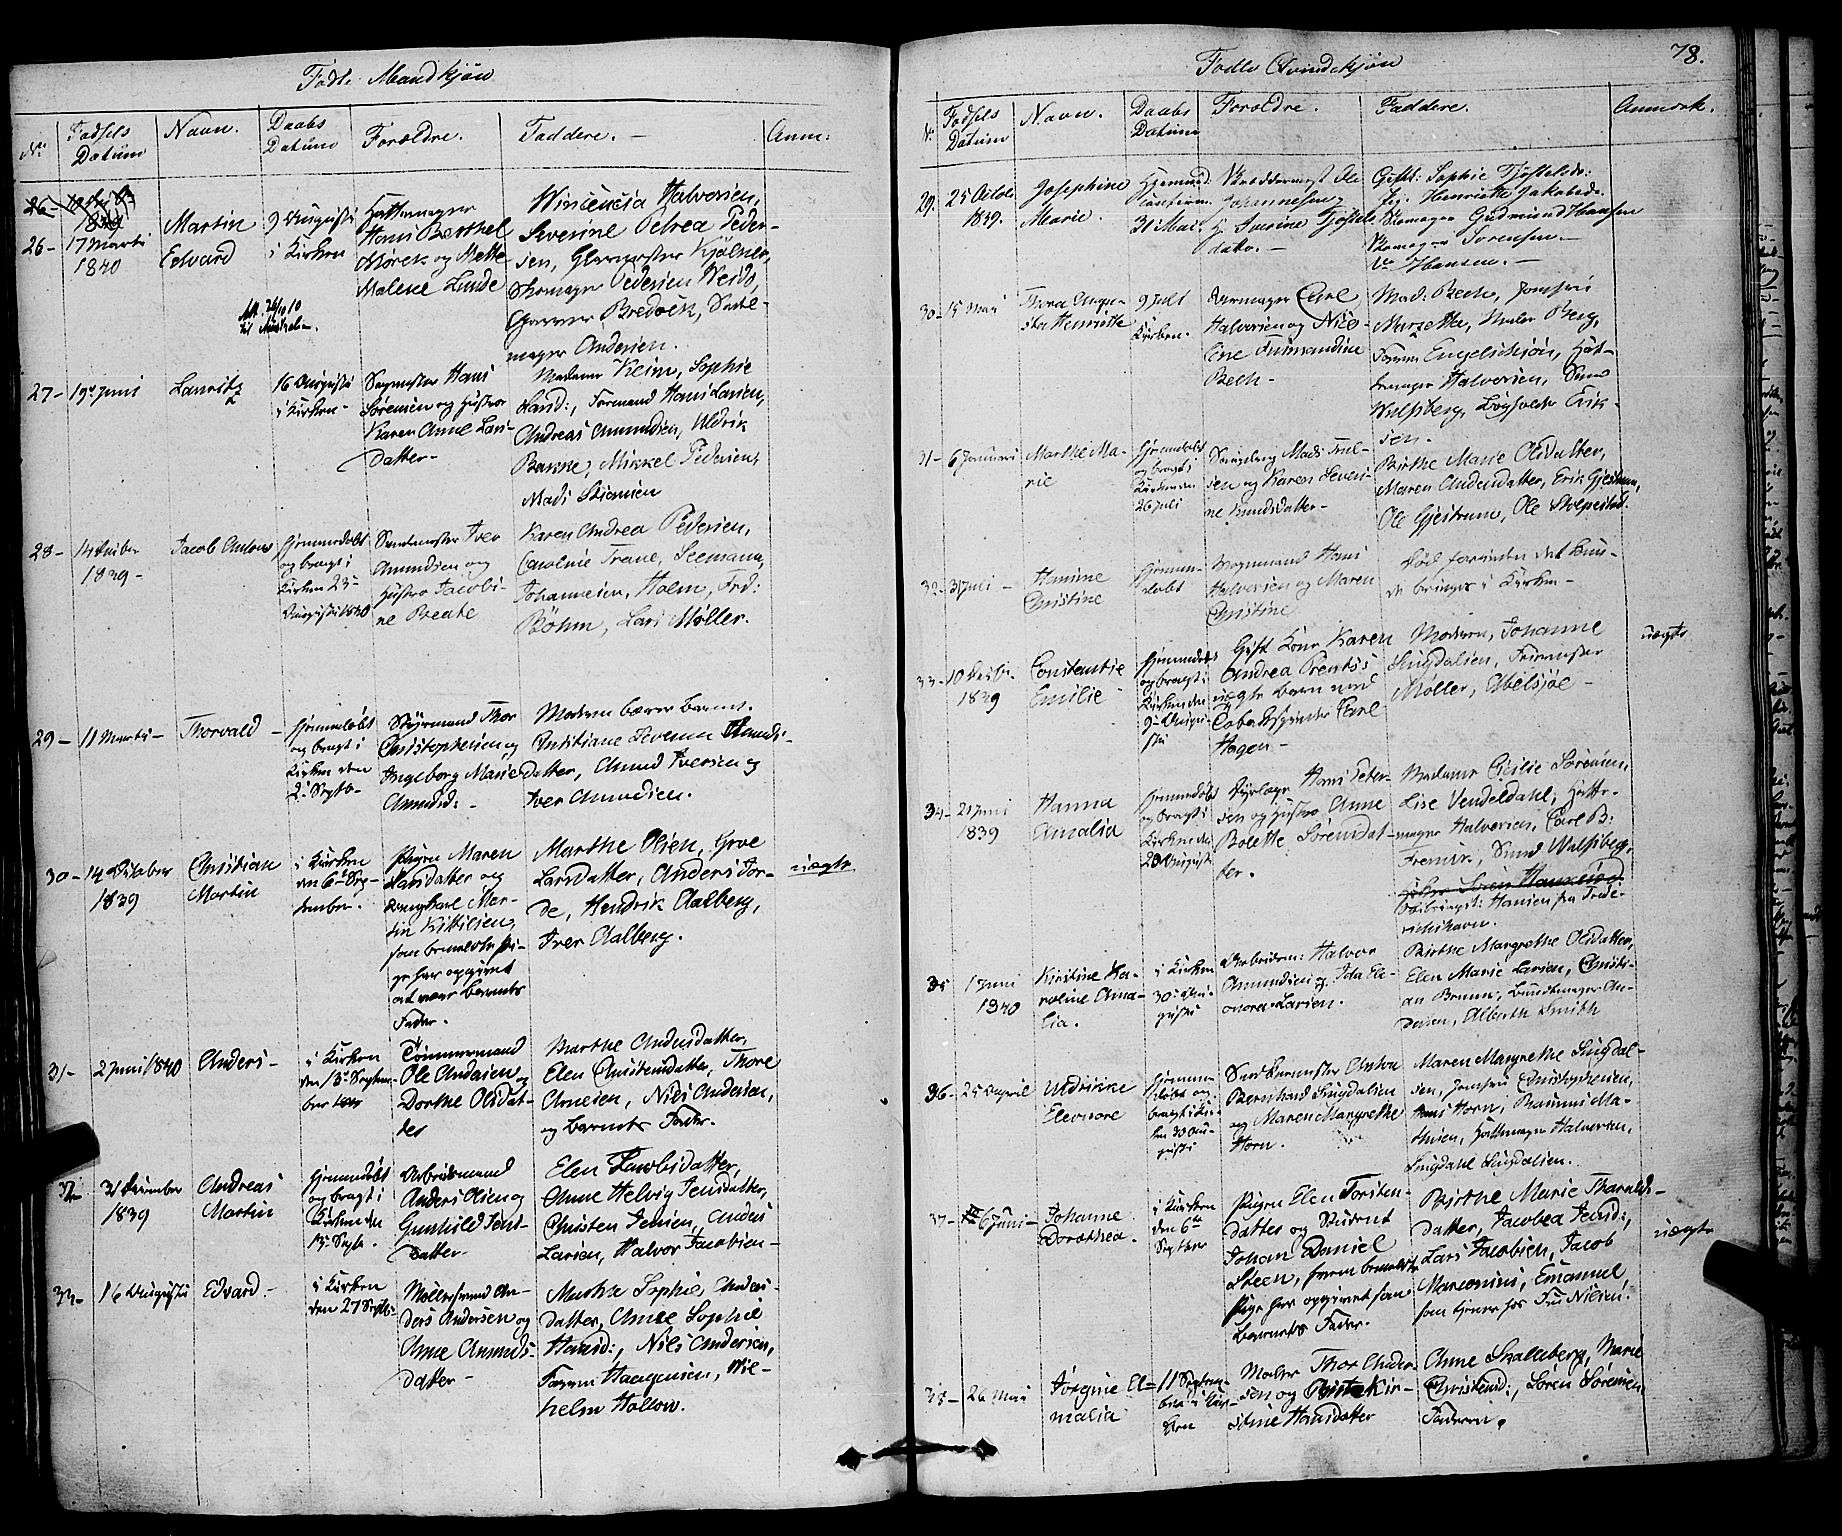 Fødte Mandkjøn
No
Fødsels Datum
Navn.
Daabs Datum
Forældre.
Faddere. —
Anm:
26-
17 Marti 1840
Martin Edvard
9 Augusti i Kirken
Hattemager Hans Berthel Mørck og Mette Malene Lunde
Wincencia Halvorsen,
Severine Petrea Peder-
sen, Glarmester Kjølner,
Skomager Pedersen Weids,
Bredock, Sadel-
mager Andersen.
27-
19de Juni
Lauritz
16 Augusti i Kirken-
Hans
Sørensen og Hustru
Karen Anne Lars-
datter-
Madame Keim, Sophie
Larsd:, Formand Hans Larsen,
Andreas Amundsen, Uldrik
Bakke, Mikkel Pedersen,
Mads
28-
14 1839-
Jacob Anton
hjemmedøbt
og bragt i
Kirken 23-
Augusti 1840
Iver
Amundsen og
Hustru Jacobi-
ne Beate
Karen Andrea Pedersen,
Caroline Trane, Seemann,
Johannesen, Holm, Fred:
Böhm, Lars Møller.
29-
11 Marti-
Thorvald-
hjemmedøbt
og bragt i
Kirken den
2 Septb-
Styrmand Thor
Christophersen og
Ingeborg Marie
Amundsd:-
Moderen bærer Barnet.
Christiane
datter, Amund Iversen og
Iver Amundsen.
30-
14 October 1839
Christian Martin
i Kirken
den 6 Sep-
tember.
Pigen Maren
Larsdatter og
Ungkarl Mar-
tin Kittilsen,
som benævnte Pi-
ge har opgivet
at være Barnets
Fader.
Marthe Olsen, Groe
Larsdatter, Anders Tor-
de, Hendrik Aalberg,
Iver Aalberg.
uægte
31-
2 Juni 1840
Anders-
i Kirken
den 13 Septem-
ber
Tømmermand
Ole Andersen og
Dorthe Olsdat-
ter
Marthe Andersdatter,
Elen Christensdatter, Thore
Arnesen, Nils Andersen,
og Barnets Fader.
32-
31 December 1839
Andreas Martin
hjemmedøbt
og bragt i
Kirken den
13 Septb.
Arbeidsmand
Anders Olsen og
Gunhild Jens-
datter-
Elen Jacobsdatter,
Anne Helvig Jensdatter,
Christen Jensen, Anders
Larsen, Halvor Jacobsen-
33-
16 Augusti
Edvard-
i Kirken
den 27 Septb.
Møllersvend An-
ders Andersen og
Anne Amunds-
datter-
Marthe Sophie Anders-
datter, Anne Sophie
Hansd:, Nils Andersen,
Haagensen, Wil-
helm Hollow.
78.
Fødte Qvindekjøn
No
Fødsels Datum
Navn.
Daabs Datum
Forældre.
Faddere.
Anmærk.
29.
25 Octob 1839.
Josephine Marie.
31 Mai.
Johannesen og
H. Severine
datter.-
Gift: Sophie
Henriette Jakobsd.
Skomager Gudmund Hansen
Skomager Sørensen-
Hansen.-
30-
15 Mai
Thora Augu-
sta Henriette
9 Juli
Kirken.
Carl
Halvorsen og Nico-
line Fernandine
Bech-
Mad: Bech, Jomfru
Mariethe, Maler Berg,
Engelschjøn, Hat-
temager Halvorsen, Smed
Wulfsberg, Erik-
sen.
31-
6 Januari
Marthe Ma-
rie
hjemmedøbt
og bragt i
Kirken den
26 Juli
Mads
sen og Karen Severi-
ne Knudsdatter-
Birthe Marie Olsdatter,
Maren Andersdatter, Erik Gjestrum,
Ole Gjestrum, Ole Stolpestad.
32-
3 Juli-
Hanine Christine
hjemme-
døbt
Hans
Halvorsen og Maren
Christine
Død forinden det kun-
de bringes i Kirken-
33-
10 1839
Constantie Emilie-
hjemmedøbt
og bragt i
Kirken den
9 Augu-
sti
Gift Kone Karen
Andrea
uægte Barn med
Carl
Hagen-
Moderen, Johanne
Lingdalsen,
Møller, Abelsjøe-
uægte
34-
21 Juni 1839
Hanna Amalia
hjemmedøbt
og bragt i
Kirken den
23 Augusti
Hans Peter-
sen og Hustru Anne
Bolette Sørensdat-
ter.
Madame Cicilie Sørensen,
Lise Vendeldahl, Hatte-
mager Halvorsen, Carl B:
Smed Wulfsberg,
Hansen fra Frede-
rikshavn.
35
1 Juni 1840
Kirstine Ka-
roline Ama-
lia.
i Kirken
30 Au-
gusti
Arbeidsm: Halvor
Amundsen og Ida Ele-
onora Larsen.
Birthe Margrethe Olsdatter,
Elen Marie Larsen, Christi-
an Bruun, Buntmager An-
dersen, Alberth Smith
36-
25 April
Uldrikke Eleonore
hjemme-
døbt og
bragt i Kir-
ken 30 Au-
gusti
Anton
Bernhard Lingdalsen
og Maren Margrethe
Horn.
Maren Margrethe Lingdal-
sen, Jomfru Christophersen,
Hans Horn, Rasmus Ma-
thisen, Hattemager Halvorsen,
Lingdahl Lingdalsen.
37-
6 Juni-
Johanne Dorothea.
i Kirken
den 6te
Septbr
Pigen Elen Torsten-
datter og Student
Johan Daniel
Steen, som benævnte
Pige har opgivet som
Barnets Fader.
Birthe Marie Tharalds-
datter, Jacobea Jensd:,
Lars Jacobsen, Jacob
Marconius, Emanuel
som tjener hos Fru Nilsen.
uægte
38-
26 Mai
Jørgine El-
malia
11 Septem-
ber i Kir-
ken
Thor Ander-
sen og Birte Kir-
stine Hansdatter
Anne Skalleberg, Marie
Christensd:, Søren Sørensen,
Faderen.